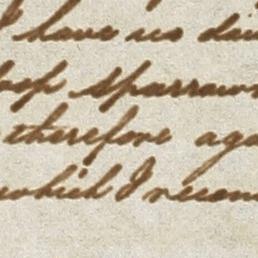 I have no
sparrow
therefore aga
which I recom